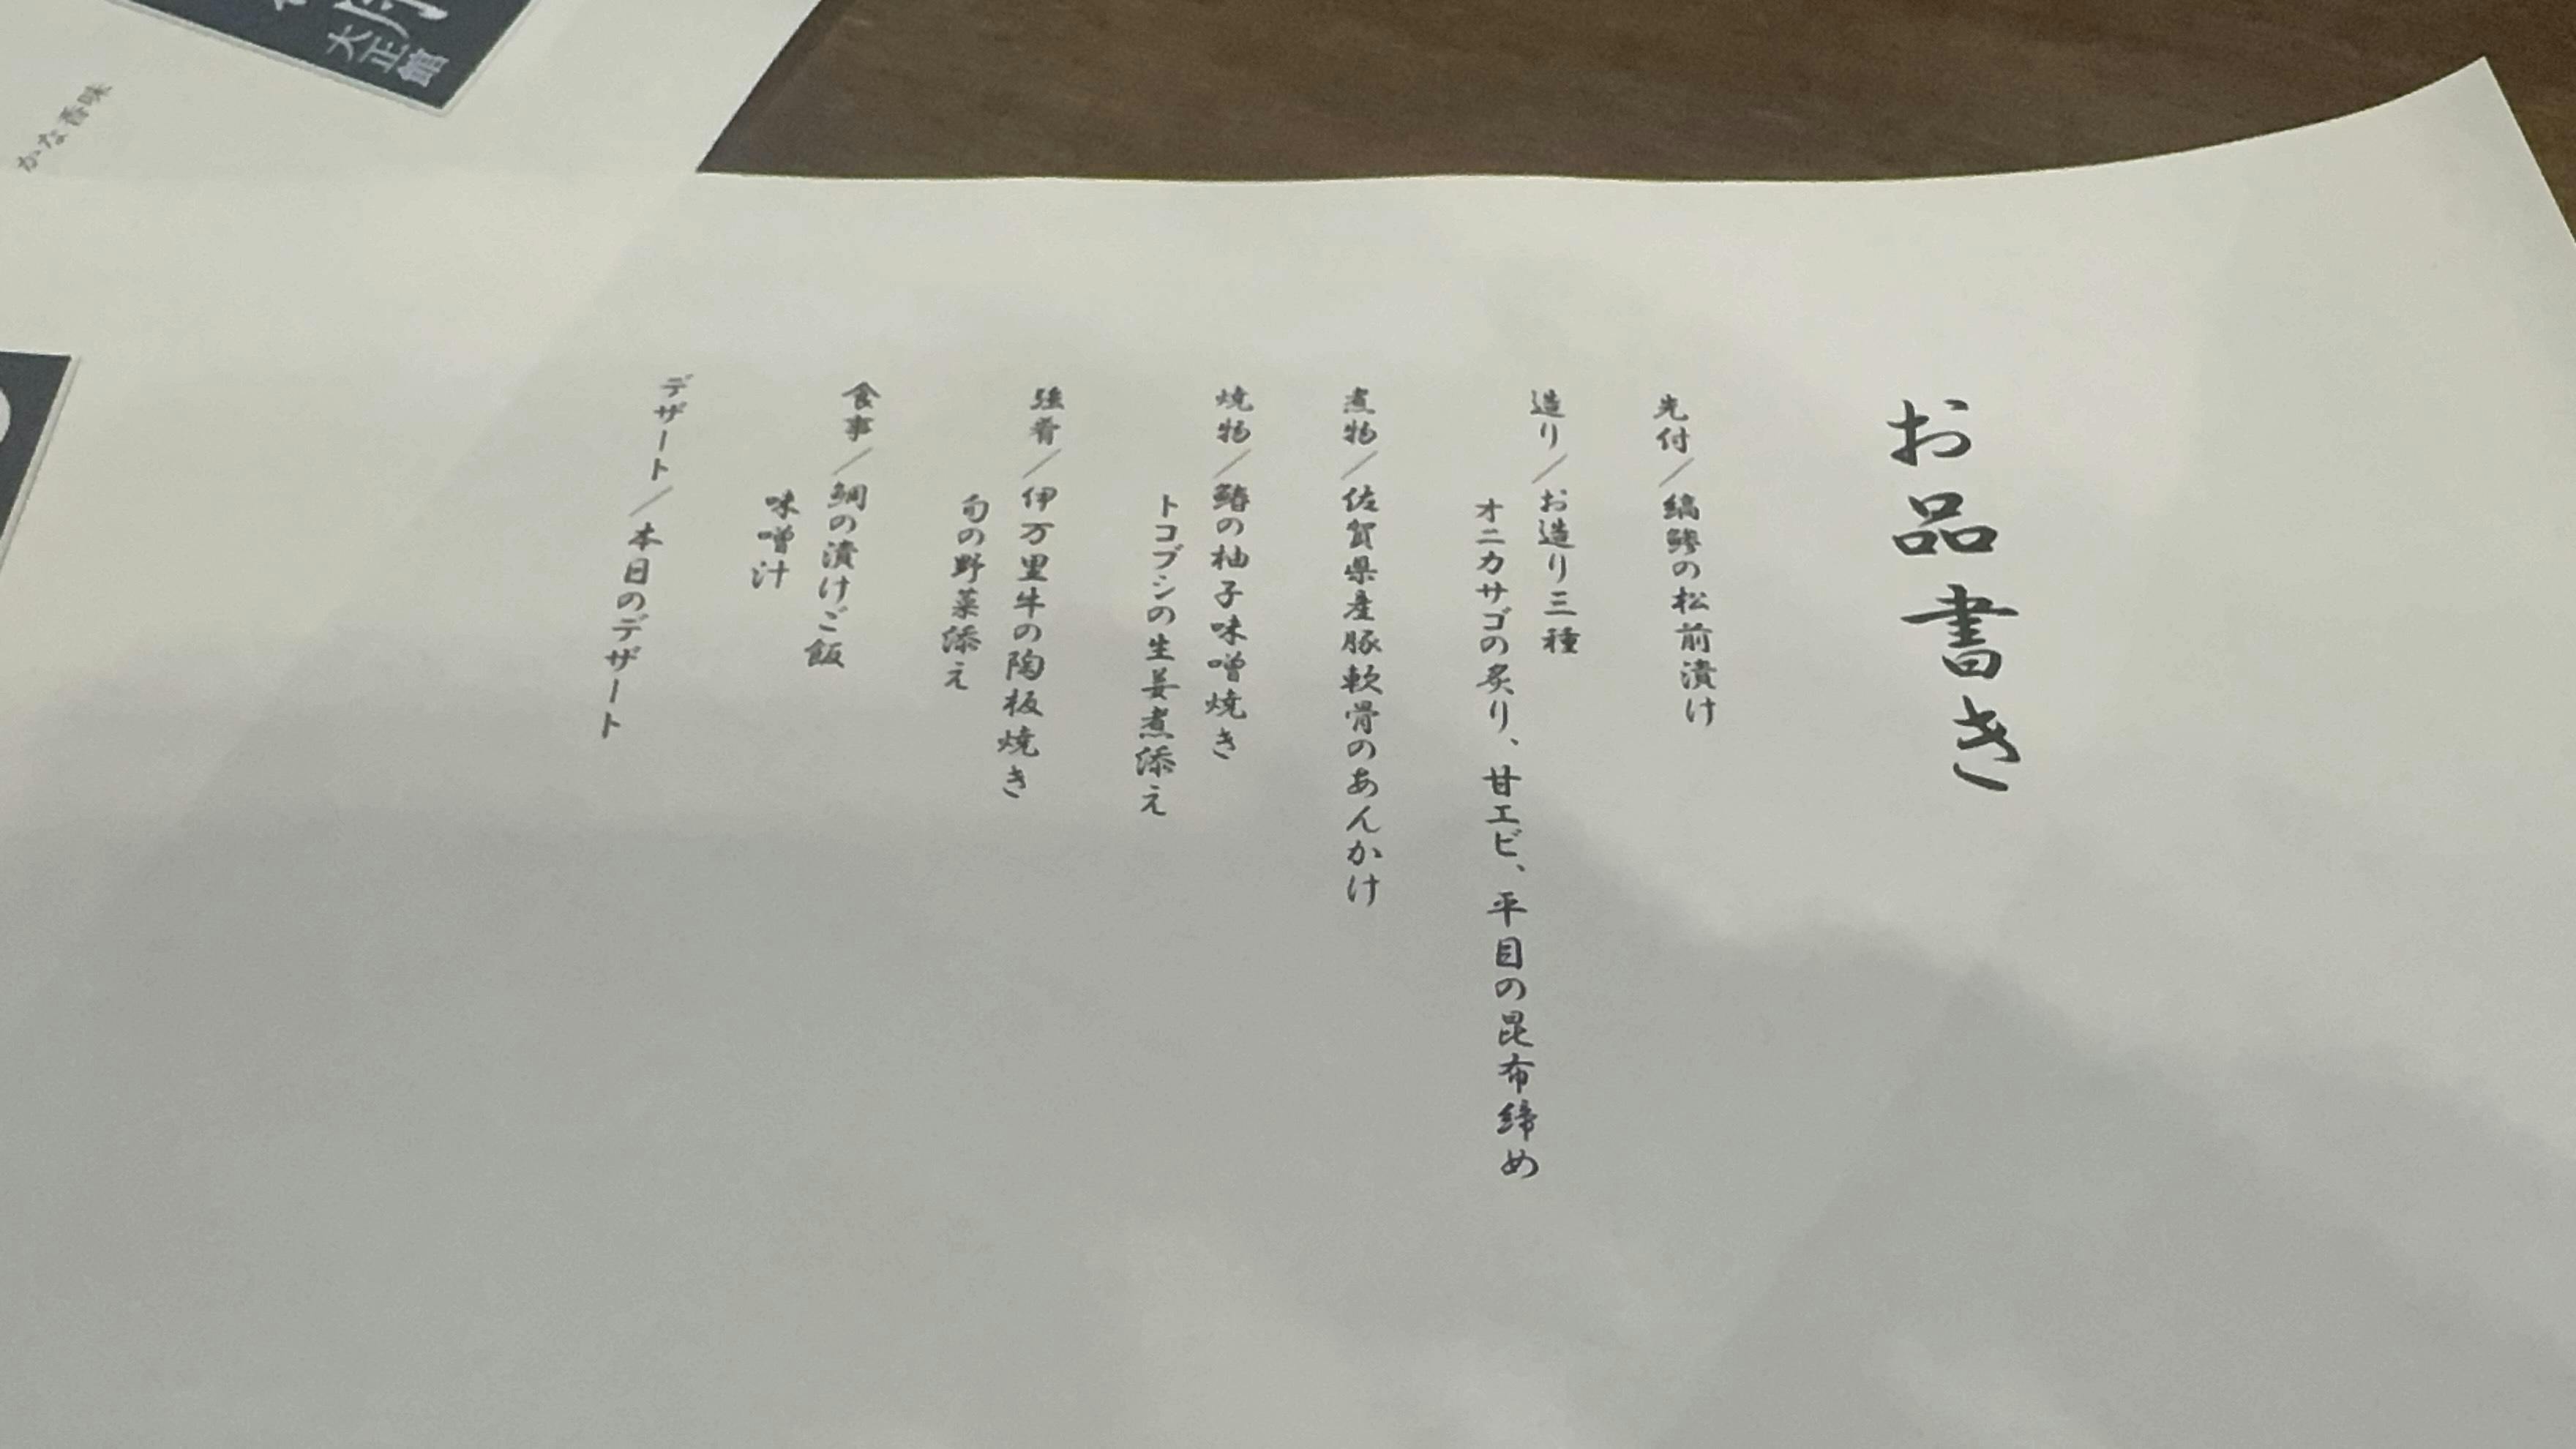 お品書き
先付/縞鯵の松前漬け
造り/お造り三種
オニカサゴの炙り、甘エビ、平目の昆布締め
煮物/佐賀県産豚軟骨のあんかけ
焼物/鰆の柚子味噌焼き
トコブシの生姜煮添え
強肴/伊万里牛の陶板焼き
旬の野菜添え
食事/鯛の漬けご飯
味噌汁
デザート/本日のデザート
大正館
かな香味